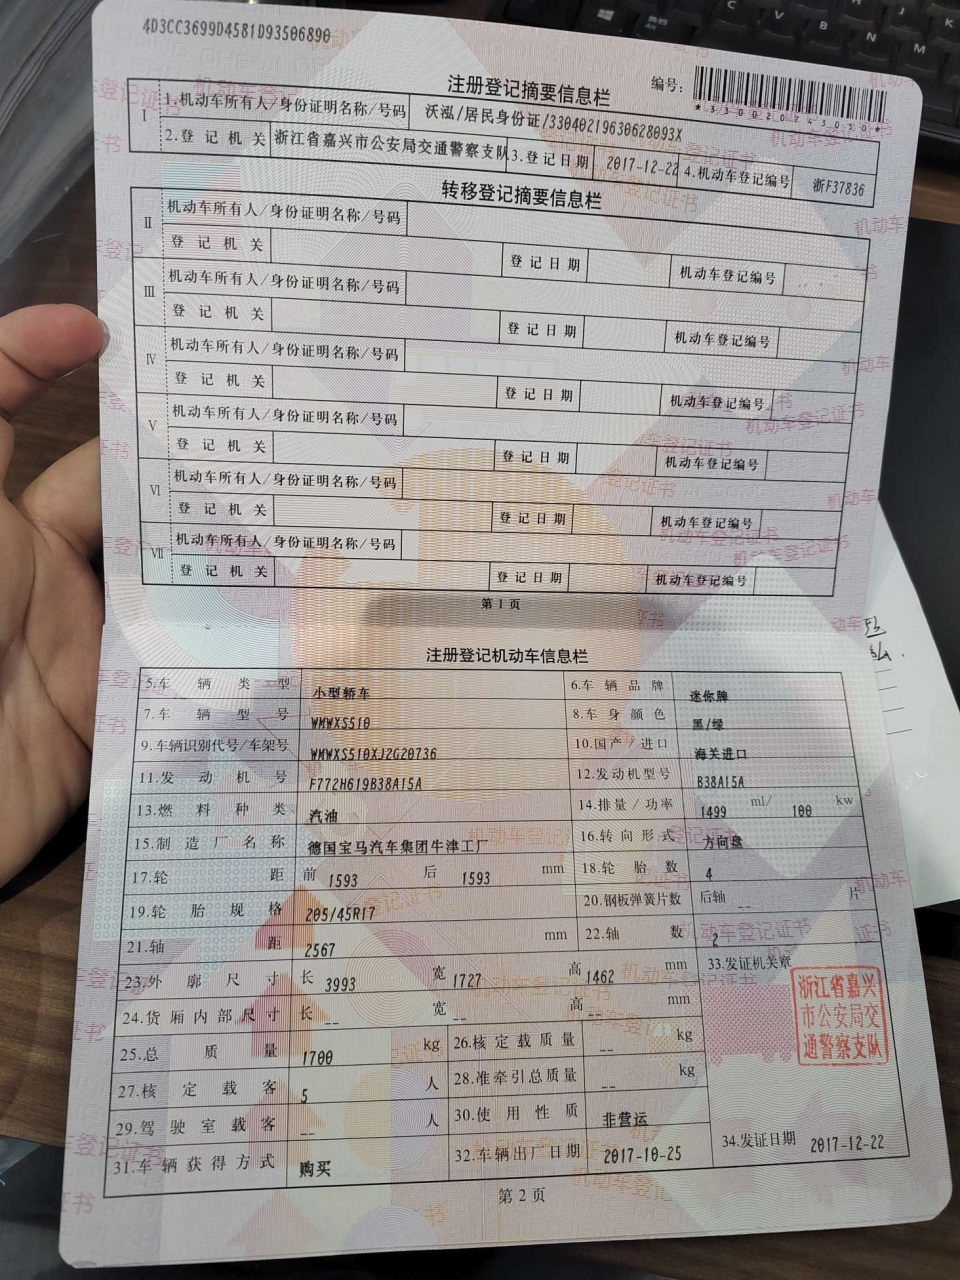 4D3CC3699D4581D93506890
注册登记摘要信息栏
编号：
*330020743030*
I 1.机动车所有人/身份证明名称/号码 沃泓/居民身份证/33040219630628093X
2.登记机关 浙江省嘉兴市公安局交通警察支队 3.登记日期 2017-12-22 4.机动车登记编号 浙F37836
转移登记摘要信息栏
II 机动车所有人/身份证明名称/号码
登记机关 登记日期 机动车登记编号
III 机动车所有人/身份证明名称/号码
登记机关 登记日期 机动车登记编号
IV 机动车所有人/身份证明名称/号码
登记机关 登记日期 机动车登记编号
V 机动车所有人/身份证明名称/号码
登记机关 登记日期 机动车登记编号
VI 机动车所有人/身份证明名称/号码
登记机关 登记日期 机动车登记编号
VII 机动车所有人/身份证明名称/号码
登记机关 登记日期 机动车登记编号
第1页
注册登记机动车信息栏
5.车辆类型 小型轿车 6.车辆品牌 迷你牌
7.车辆型号 WMWXS510 8.车身颜色 黑/绿
9.车辆识别代号/车架号 WMWXS510XJ2G20736 10.国产/进口 海关进口
11.发动机号 F772H619B38A15A 12.发动机型号 B38A15A
13.燃料种类 汽油 14.排量/功率 1499 ml/ 100 kw
15.制造厂名称 德国宝马汽车集团牛津工厂 16.转向形式 方向盘
17.轮距 前 1593 后 1593 mm 18.轮胎数 4
19.轮胎规格 205/45R17 20.钢板弹簧片数 后轴 -- 片
21.轴距 2567 mm 22.轴数 2
23.外廓尺寸 长 3993 宽 1727 高 1462 mm 33.发证机关章
24.货厢内部尺寸 长 -- 宽 -- 高 -- mm
浙江省嘉兴
市公安局交
通警察支队
25.总质量 1700 kg 26.核定载质量 -- kg
27.核定载客 5 人 28.准牵引总质量 -- kg
29.驾驶室载客 -- 人 30.使用性质 非营运
31.车辆获得方式 购买 32.车辆出厂日期 2017-10-25 34.发证日期 2017-12-22
第2页